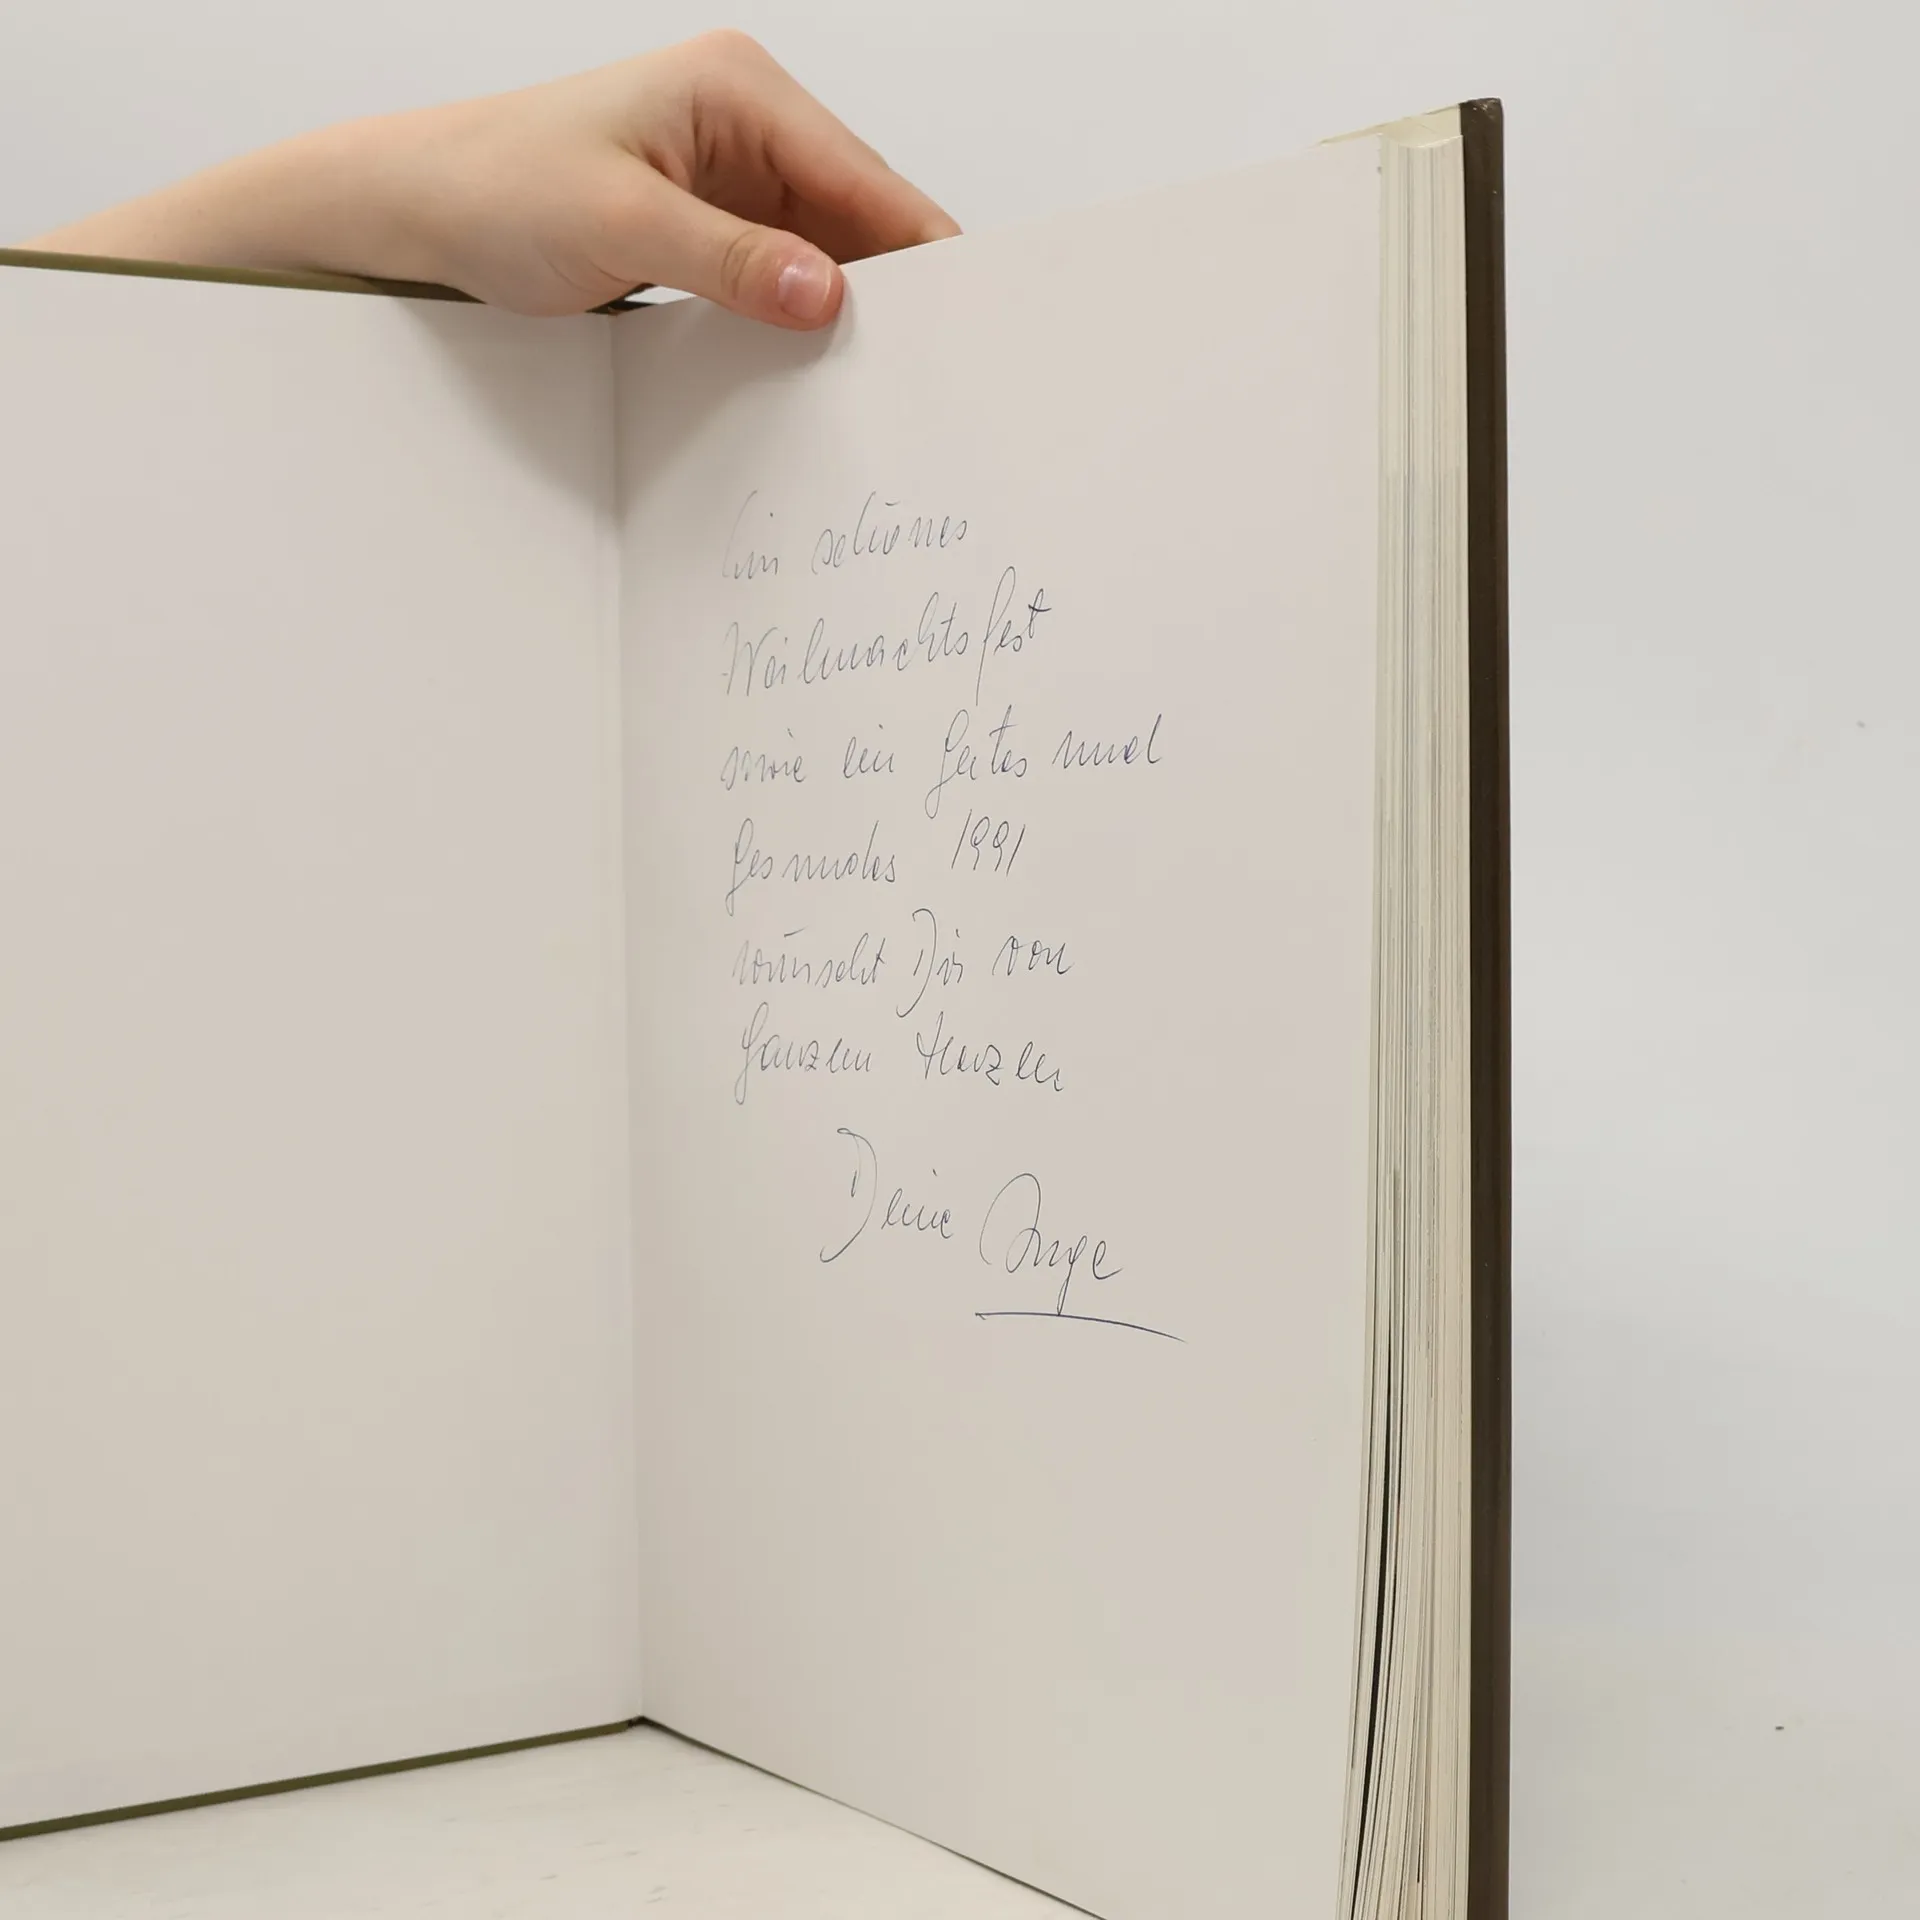 Ein schönes
Weihnachtsfest
sowie ein Gutes und
Gesundes 1991
wünscht Dir von
Ganzem Herzen
Deine Inge